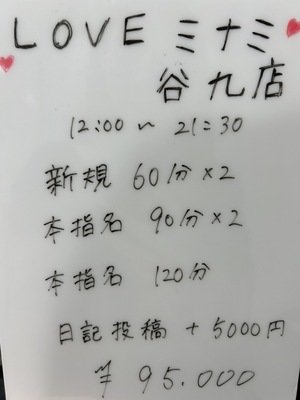 LOVE ミナミ
谷九店
12:00 〜 21:30
新規 60分×2
本指名 90分×2
本指名 120分
日記投稿 + 5000円
¥ 95.000